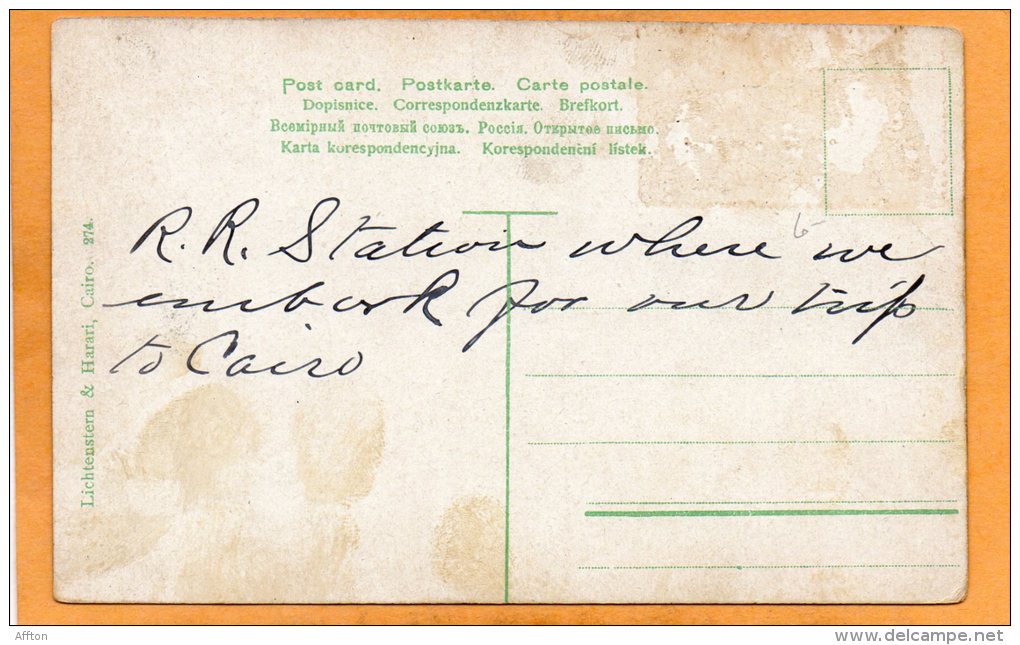 Post card. Postkarte. Carte postale.
Dopisnice. Correspondenzkarte. Brefkort.
Всемірный почтовый союзъ. Россія. Открытое письмо.
Karta korespondencyjna. Korespondenční lístek.
R. R. Station where we
embark for our trip
to Cairo
Lichtenstern & Harari, Cairo. 274.
6-
Affton
delcampe.net